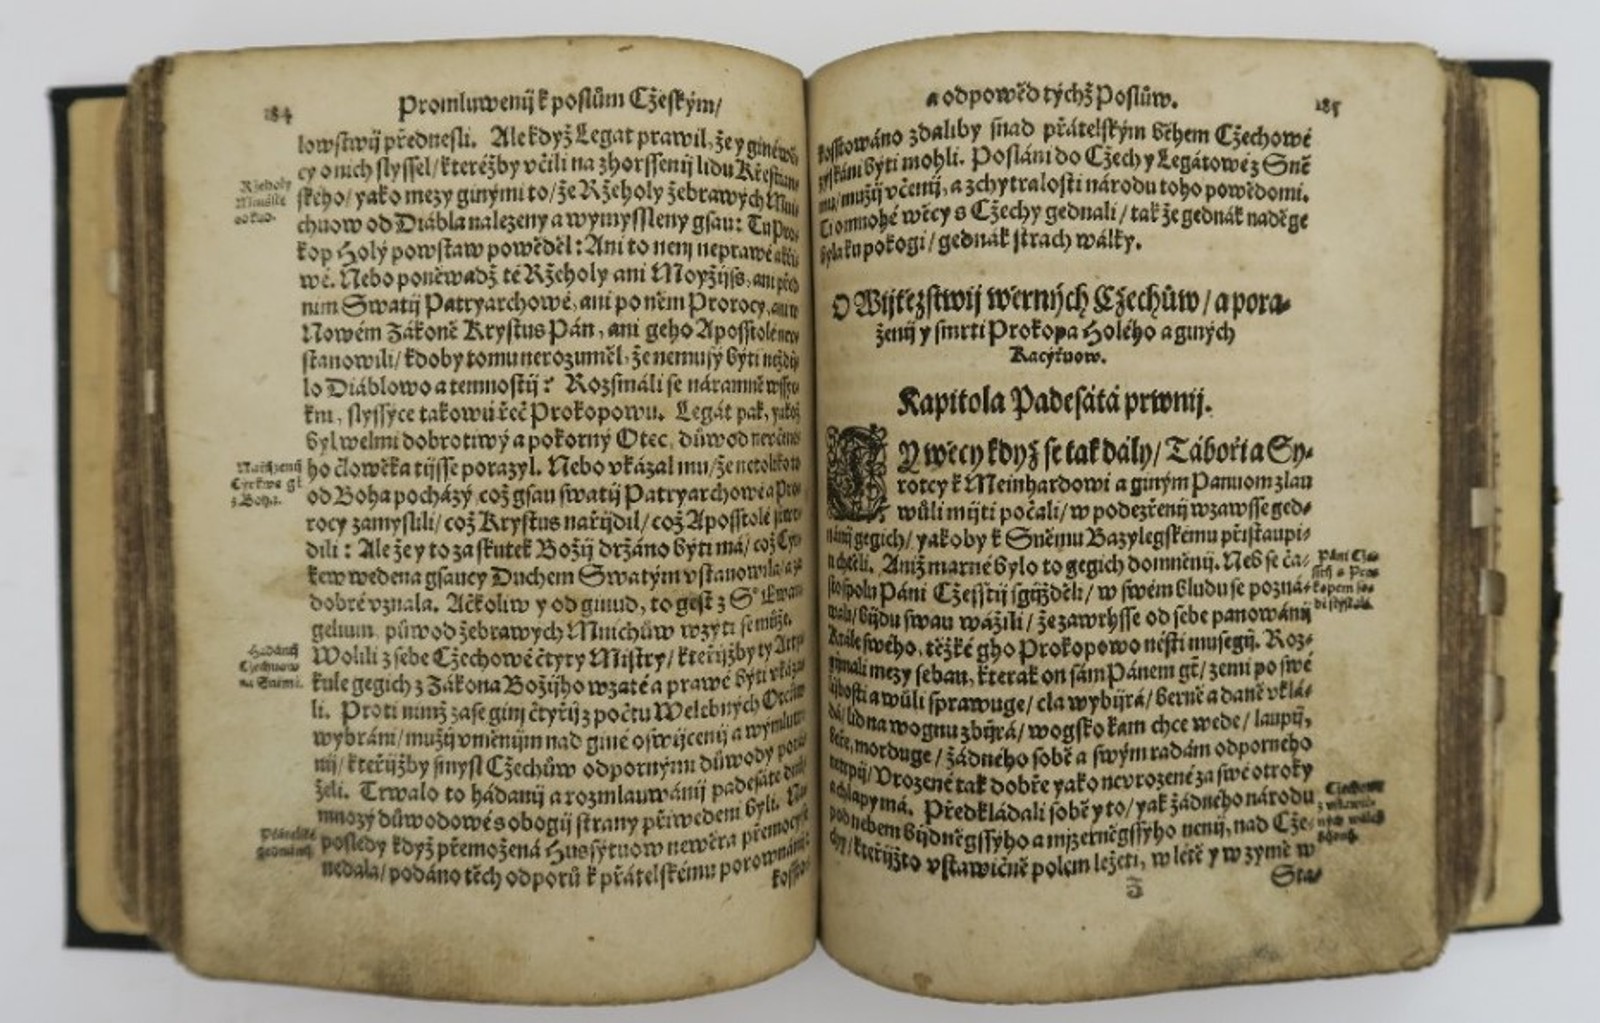 184
Promluwenij k poslům Cžeským/
lowstwij přednesli. Ale když Legat prawil, že y giné
cy o nich slyssel/ kteréžby včili na zhorssenij lidu Křestian
Ržeholy
ského/ yako mezy ginými to/ že Ržeholy žebrawých
chuow od Diábla nalezeny a wymyssleny gsau: Tu Pro
kop Holý powstaw powěděl: Ani to nenj neprawé
wé. Nebo poněwadž té Ržeholy ani Moyžijss, ani před
nim Swatij Patryarchowé, ani po něm Prorocy,
Nowém Zákoně Krystus Pán, ani geho Aposstolé
stanowili/ kdoby tomu nerozuměl, že nemusý býti
lo Diáblowo a temnostij? Rozsmáli se náramně
kni, slyssýce takowú řeč Prokopowu. Legát pak, yakož
byl welmi dobrotiwý a pokorný Otec, důwod
Nařijzenij
Cyrkwe gt
z Boha.
ho člowěka tijsse porazyl. Nebo vkázal mu/ že netoliko to
od Boha pocházý což gsau swatij Patryarchowé a Pro
rocy zamyslili/ což Krystus nařijdil/ což Aposstolé
dili: Ale že y to za skutek Božij držáno býti má/ což Cýr
kew wedena gsaucy Duchem Swatým vstanowila/ a za
dobré vznala. Ačkoliw y od ginud, to gest z S° Ewan
gelium, půwod žebrawých Mnichůw wzýti se může.
Hádánij
Cžechuow
na Sněmě.
Wolili z sebe Cžechowé čtyry Mistry/ kteřijžby ty Arty
kule gegich z Zákona Božijho wzaté a prawé býti vkáza
li. Proti nimž zase ginj čtyřij z počtu Welebných Otcůw
wybráni/ mužij vměnijm nad giné oswijcenij a wýmluw
nij/ kteřijžby smysl Cžechůw odpornými důwody
želi. Trwalo to hádanij a rozmlauwánij padesáte
mnozý důwodowé s obogij strany přiwedeni byli.
Přátelské
gednánij
posledy když přemožená Hussýtuow newěra přemocy
nedala/ podáno těch odporů k přátelskému porownánij
kosst
185
a odpowěd týchž Poslůw.
kosstowáno zdaliby snad přátelským během Cžechowé
zýskáni býti mohli. Posláni do Cžech y Legátowé z Sně
mu/ mužij včenij, a z chytralosti národu toho powědomi.
Ti o mnohé wěcy s Cžechy gednali/ tak že gednák naděge
byla ku pokogi/ gednák strach wálky.
O Wijtězstwij wěrných Cžechůw/ a pora-
ženij y smrti Prokopa Holého a giných
Kacýřuow.
Kapitola Padesátá prwnij.
TY wěcy když se tak dály/ Tábořia Sy-
rotcy k Meinhardowi a giným Panuom zlau
wůli mijti počali/ w podezřenij wzawsse ged-
nánij gegich/ yakoby k Sněmu Bazylegskému přistaupi-
ti chtěli. Aniž marné bylo to gegich domněnij. Neb se ča-
sto spolu Páni Cžesstij sgijžděli/ w swém bludu se pozná-
wali/ bijdu swau wážili/ že zawrhsse od sebe panowánij
Krále swého, těžké gho Prokopowo nésti musegij. Roz-
gijmali mezy sebau, kterak on sám Pánem gt/ zemi po swé
lijbosti a wůli sprawuge/ cla wybijrá/ berně a daně vklá-
dá/ lid na wognu zbijrá/ wogsko kam chce wede/ laupij,
béře, morduge/ žádného sobě a swým radám odporneho
netrpij/ Vrozené tak dobře yako nevrozené za swé otroky
a chlapy má. Předkládali sobě y to/ yak žádného národu
pod nebem bijdněgssýho a mjzerněgssýho nenij, nad Cže-
chy/ kteřijžto vstawičně polem ležeti, w létě y w zymě w
Z
Sta-